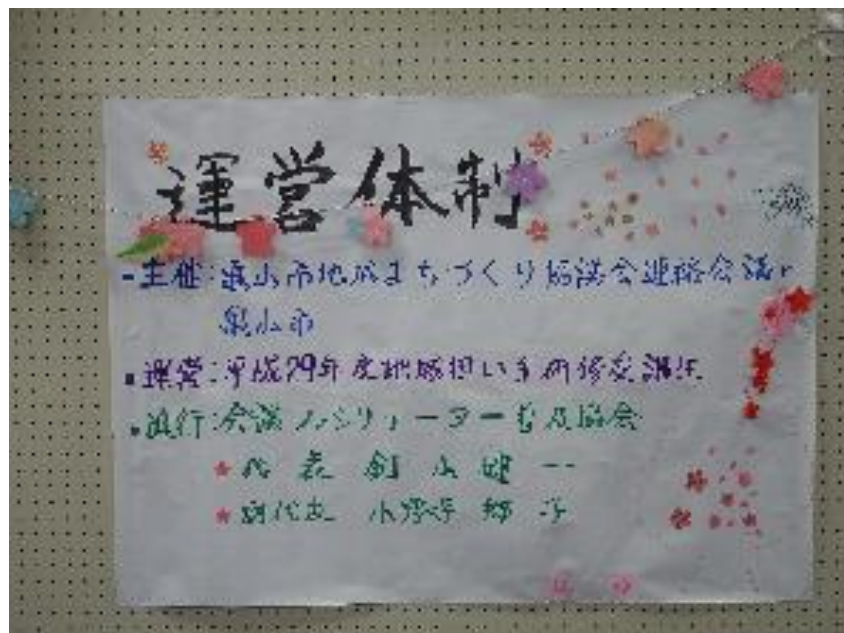 運営体制
・主催:亀山市地域まちづくり協議会連絡会議、
亀山市
・運営:平成29年度地域担い手研修受講生
・進行:会議ファシリテーター普及協会
★代表 釘山健一
★副代表 小野寺郷子